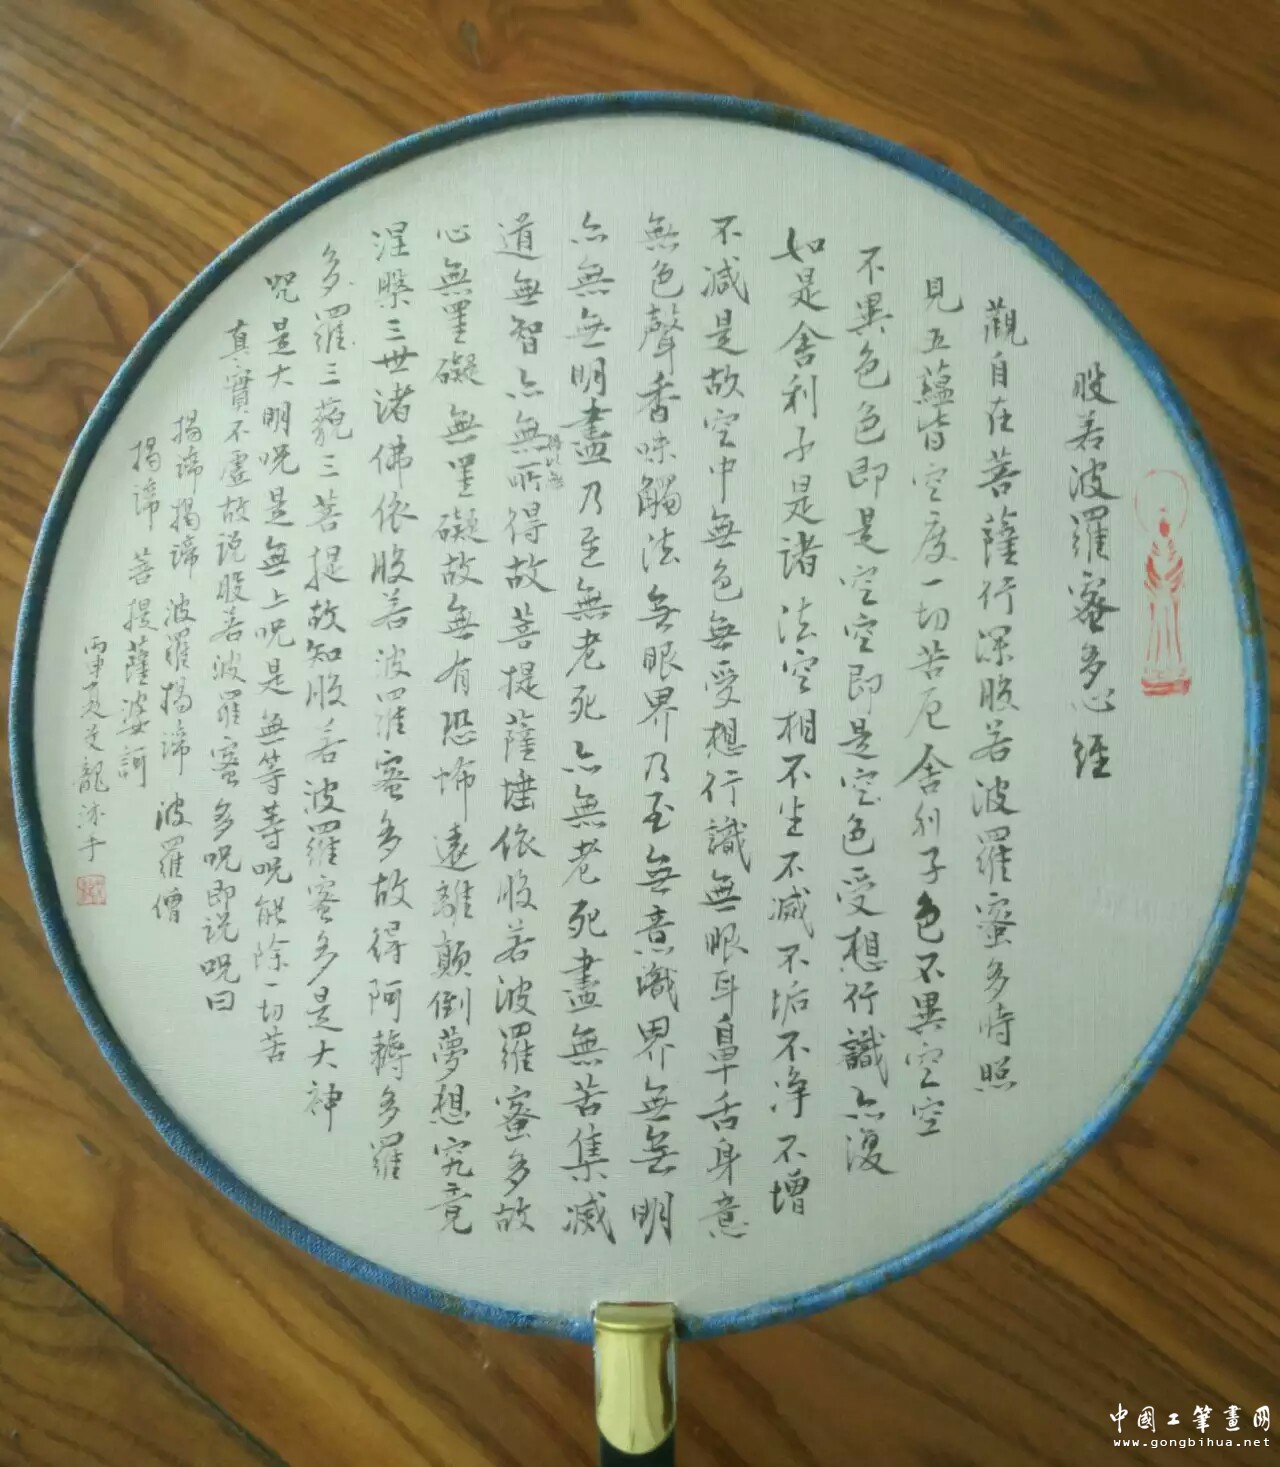 般若波羅蜜多心經
觀自在菩薩行深般若波羅蜜多時照
見五蘊皆空度一切苦厄舍利子色不異空空
不異色色即是空空即是空色受想行識亦復
如是舍利子是諸法空相不生不滅不垢不净不增
不減是故空中無色無受想行識無眼耳鼻舌身意
無色聲香味觸法無眼界乃至無意識界無無明
亦無無明盡乃至無老死亦無老死盡無苦集滅
道無智亦無所得故菩提薩埵依般若波羅蜜多故
得以無
心無罣礙無罣礙故無有恐怖遠離顛倒夢想究竟
涅槃三世諸佛依般若波羅蜜多故得阿耨多羅
多羅三藐三菩提故知般若波羅蜜多是大神
咒是大明咒是無上咒是無等等咒能除一切苦
真實不虛故说般若波羅蜜多咒即说咒曰
揭諦揭諦 波羅揭諦 波羅僧
揭諦 菩提薩婆訶
丙申夏 龍沐手
中國工筆畫网
www.gongbihua.net